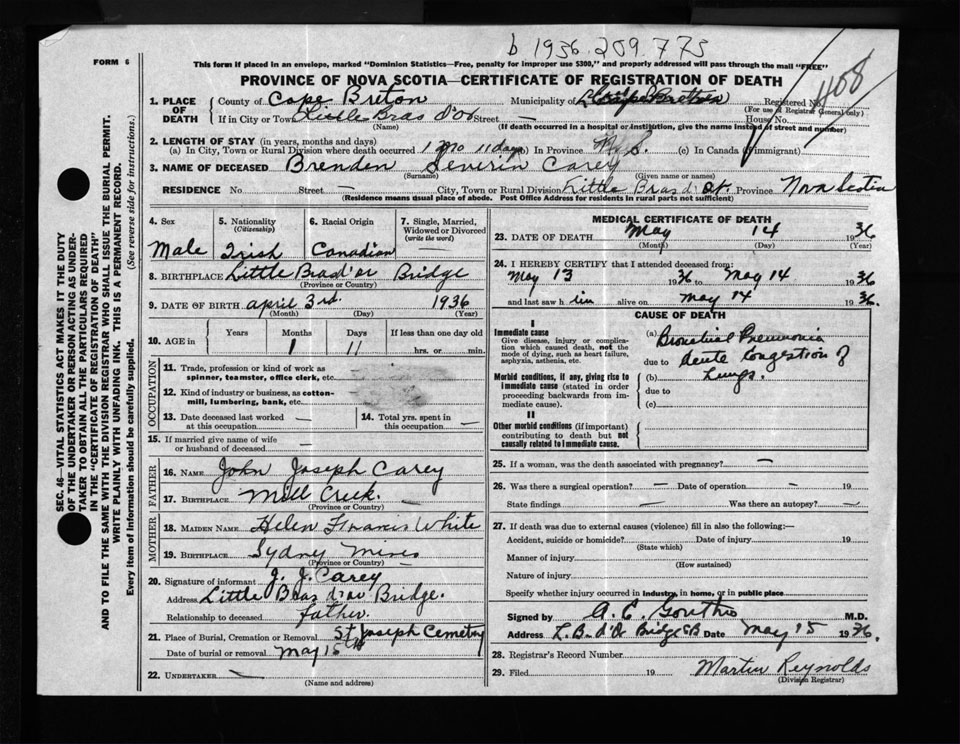 b 1936 209 773
FORM 6
This form if placed in an envelope, marked "Dominion Statistics—Free, penalty for improper use $300," and properly addressed will pass through the mail "FREE"
PROVINCE OF NOVA SCOTIA—CERTIFICATE OF REGISTRATION OF DEATH
1408
1. PLACE OF DEATH
County of Cape Breton Municipality of Cape Breton Registered No.
(For use of Registrar General only)
If in City or Town Little Bras d'or Street — House No.
(Name) (If death occurred in a hospital or institution, give the name instead of street and number)
2. LENGTH OF STAY (in years, months and days)
(a) In City, Town or Rural Division where death occurred 1 mo 11 days (b) In Province N.S. (c) In Canada (if immigrant)
3. NAME OF DECEASED Brenden Severin Carey
(Surname) (Given name or names)
RESIDENCE No Street — City, Town or Rural Division Little Bras d'or. Province Nova Scotia
(Residence means usual place of abode. Post Office Address for residents in rural parts not sufficient)
4. Sex
Male
5. Nationality
(Citizenship)
Irish
6. Racial Origin
Canadian
7. Single, Married, Widowed or Divorced
(write the word)
8. BIRTHPLACE Little Brad'or Bridge
(Province or Country)
9. DATE OF BIRTH april 3rd. 1936
(Month) (Day) (Year)
10. AGE in
Years Months Days If less than one day old
1 11 hrs. or min.
OCCUPATION
11. Trade, profession or kind of work as
spinner, teamster, office clerk, etc.
12. Kind of industry or business, as cotton-
mill, lumbering, bank, etc.
13. Date deceased last worked
at this occupation —
14. Total yrs. spent in
this occupation —
15. If married give name of wife
or husband of deceased —
FATHER
16. NAME John Joseph Carey
17. BIRTHPLACE Mill Creek. —
(Province or Country)
MOTHER
18. MAIDEN NAME Helen Francis White
19. BIRTHPLACE Sydny Mines
(Province or Country)
20. Signature of informant J. J. Carey
Address Little Bras d'or Bridge.
Relationship to deceased father
21. Place of Burial, Cremation or Removal St Joseph Cemetery
Date of burial or removal May 15th
22. UNDERTAKER —
(Name and address)
MEDICAL CERTIFICATE OF DEATH
23. DATE OF DEATH May 14 1936
(Month) (Day) (Year)
24. I HEREBY CERTIFY that I attended deceased from:
May 13 1936 to May 14 1936
and last saw him alive on May 14 1936.
CAUSE OF DEATH
I
Immediate cause
Give disease, injury or complica-
tion which caused death, not the
mode of dying, such as heart failure,
asphyxia, asthenia, etc.
Morbid conditions, if any, giving rise to
immediate cause (stated in order
proceeding backwards from im-
mediate cause).
II
Other morbid conditions (if important)
contributing to death but not
causally related to immediate cause.
(a) Bronchial Pneumonia
due to Acute Congestion of
(b) Lungs.
due to
(c)
25. If a woman, was the death associated with pregnancy? —
26. Was there a surgical operation? — Date of operation — 19
State findings — Was there an autopsy? —
27. If death was due to external causes (violence) fill in also the following:—
Accident, suicide or homicide? Date of injury 19
(State which)
Manner of injury
(How sustained)
Nature of injury
Specify whether injury occurred in industry, in home, or in public place
Signed by A. E. M.D.
Address L. B. d'Or Bridge CB Date May 15 1936.
28. Registrar's Record Number
29. Filed 19 Martin Reynolds
(Division Registrar)
SEC. 46—VITAL STATISTICS ACT MAKES IT THE DUTY
OF THE UNDERTAKER OR PERSON ACTING AS UNDER-
TAKER TO OBTAIN ALL THE PARTICULARS REQUIRED
IN THE "CERTIFICATE OF REGISTRATION OF DEATH"
AND TO FILE THE SAME WITH THE DIVISION REGISTRAR WHO SHALL ISSUE THE BURIAL PERMIT.
WRITE PLAINLY WITH UNFADING INK. THIS IS A PERMANENT RECORD.
Every item of information should be carefully supplied. (See reverse side for instructions.)